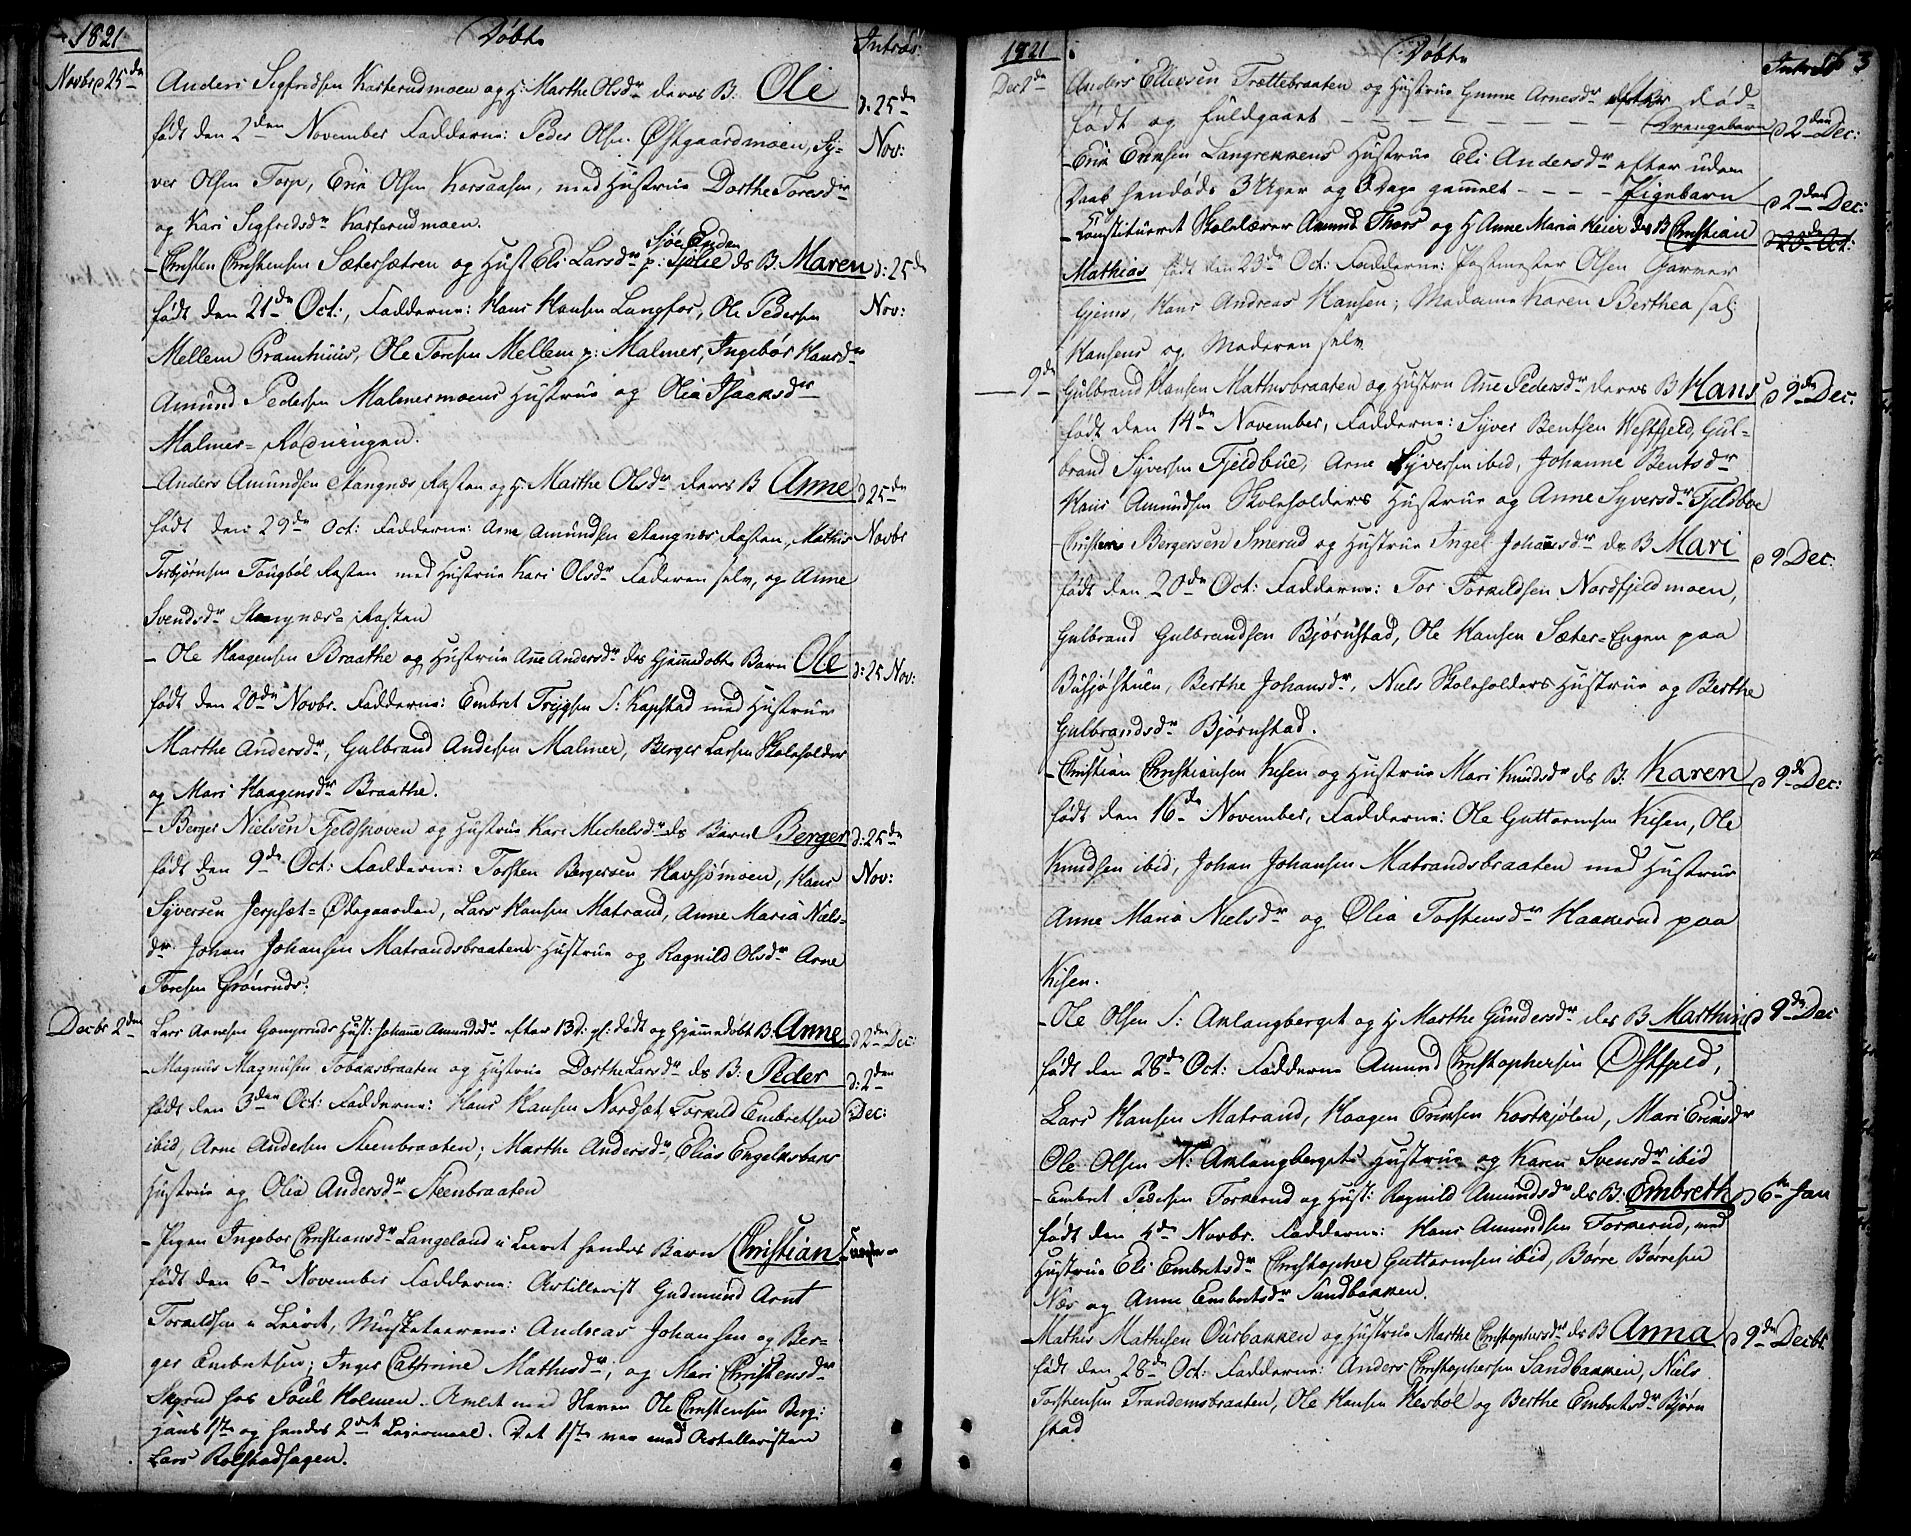 1821 Døbte Introd:
Novbr 25de Anders Sigfredsen Kasterudmoen og H: Marthe Olsdr deres B: Ole d: 25de
født den 2den November Fadderne: Peder Olsen Østgaardmoen, Sy= Nov:
ver Olsen Torp, Erik Olsen Korsaasen, med Hustrue Dorthe Toresdr
og Kari Sigfredsdr Kasterudmoen.
Sjøe Enden
- Christen Christensen Sætersætren og Hust Eli Larsdr p: ds B: Maren d: 25de
født den 21de Oct:, Fadderne: Hans Hansen Langfos, Ole Pedersen Nov:
Mellem Bramhuus, Ole Toresen Mellem p: Malmer, Ingebor Hansdr
Amund Pedersen Malmermoens Hustrue og Olia Isaaksdr
Malmer-Rødningen.
- Anders Amundsen Stangnæs Kasten og H: Marthe Olsdr deres B Anne d 25de
født den 29de Oct: Fadderne: Arne Amundsen Stangnæs Kasten, Mathis Novbr
Torbjørnsen Tougbøl Kasten med Hustrue Kari Olsdr Faderen selv, og Anne
Svendsdr Stangnæs-Kasten
- Ole Haagensen Braathe og Hustrue Anne Andersdr des Hjemmedøbte Barn Ole d: 25 Nov:
født den 20de Novbr. Fadderne: Embret Trygsen S: Kapstad med Hustrue
Marthe Andersdr, Gulbrand Andersen Malmer, Berger Larsen Skoleholder
og Mari Haagensdr Braathe.
- Berger Nielsen Fjeldskoven og Hustrue Kari Michelsdr ds Barn Berger d: 25de
født den 9de Oct: Fadderne: Torsten Bergersen Havsjømoen, Hans Nov:
Syversen Jerpset-Ødegaarden, Lars Hansen Matrand, Anne Maria Niels-
dr Johan Johansen Matrandsbraatens Hustrue og Ragnild Olsdr Arne
Toresen Grønruds.
Decbr 2den Lars Arnesen Hust: Johanne Amundsdr efter 13 d: gl: født og Hjemmedøbt B: Anne d 2den Dec:
- Magnus Magnusen Tobaksbraaten og Hustrue Dorthe Larsdr ds B: Peder d: 2den
født den 3den Oct: Fadderne: Hans Hansen Nordset, Torkild Embretsen Dec:
ibid, Arne Andersen Steenbraaten; Marthe Andersdr, Elias Engelksbaks
Hustrue og Olia Andersdr Steenbraaten
- Pigen Ingebor Christiansdr Langeland i Leiret hendes Barn Christian
født den 6te November Fadderne: Artillerist Gudmund Arnt
Torkildsen i Leiret, Musketeererne: Andreas Johansen og Ber-
ger Embretsen; Inger Cathrine Mathisdr; og Mari Christensdr
hos Poul Holmen. Avlet med Ole Christensen Berg:
Hans 1ste og hendes 2det Leiermaal. Det 1ste var med Artilleristen
Lars Rolstadhagen.
1821 Døbte Introd 163
Dec 2de Anders Ellevsen Trættebraaten og Hustrue Gunne Arnesdr død-
født og fuldgaaet - - - - Drengebarn d 2den Dec:
- Erik Eriksen Langrekkens Hustrue Eli Andersdr efter uden
Daab hendøde 3 Uger og Dage gammelt - - - Pigebarn d 2den Dec:
- Constitueret Skolelærer Amund Thors og H Anne Maria Keier ds B Christian
Mathias født den 23de Oct: Fadderne: Postmester Olsen Garver
Gjems, Hans Andreas Hansen; Madame Karen Berthea sal:
Hansens og Moderen selv
9de Gulbrand Hansen Mathisbraaten og Hustrue Anne Pedersdr deres B Hans d 9de Dec:
født den 14de November, Fadderne: Syver Bentsen Westfjeld, Gul-
brand Syversen Fjeldbue, Arne Syversen ibid, Johanne Bentsdr
Hans Amundsen Skoleholders Hustrue og Anne Syversdr Fjeldboe
- Christen Bergersen Smerud og Hustrue Ingel Johansdr ds B Mari d 9 Dec:
født den 20de Oct: Fadderne: Tor Torkildsen Nordfjeldmoen,
Gulbrand Gulbrandsen Bjørnstad, Ole Hansen Sæter-Engen paa
Busjøstuen, Berthe Johansdr, Niels Skoleholders Hustrue og Berthe
Gulbrandsdr Bjørnstad.
- Christian Christiansen Kisen og Hustrue Mari Knudsdr ds B: Karen d 9de Dec:
født den 16de November, Fadderne: Ole Guttormsen Kisen, Ole
Knudsen ibid, Johan Johansen Matrandsbraaten med Hustrue
Anne Maria Nielsdr og Olia Torstensdr Haakerud paa
Kisen.
- Ole Olsen S: Aklangberget og H Marthe Gundersdr des B Marthin d 9de Dec
født den 28de Oct: Fadderne Amund Christophersen Østfjeld,
Lars Hansen Matrand, Haagen Eriksen Kostkjølen, Mari Eriksdr
Ole Olsen N: Aklangbergets Hustrue og Karen Svensdr ibid
- Embret Pedersen Torkerud og Hust: Ragnild Amundsdr ds B: Embreth d 6te Jan
født den 4de Novbr. Fadderne: Hans Amundsen Torkerud, med
Hustrue Eli Embretsdr Christopher Guttormsen ibid, Børre Børresen
Næs og Anne Embretsdr Sandbakken.
- Mathis Mathisen Oursbakken og Hustrue Marthe Christophersdr ds B Anna d 9de Decbr
født den 28de Oct: Fadderne: Anders Christophersen Sandbakken, Niels
Torstensen Trandemsbraaten, Ole Hansen Kesbøl og Berthe Embretsdr Bjørn
stad